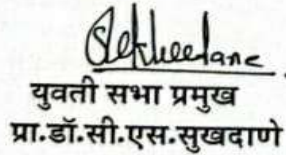 युवती सभा प्रमुख
प्रा.डॉ.सी.एस.सुखदाणे